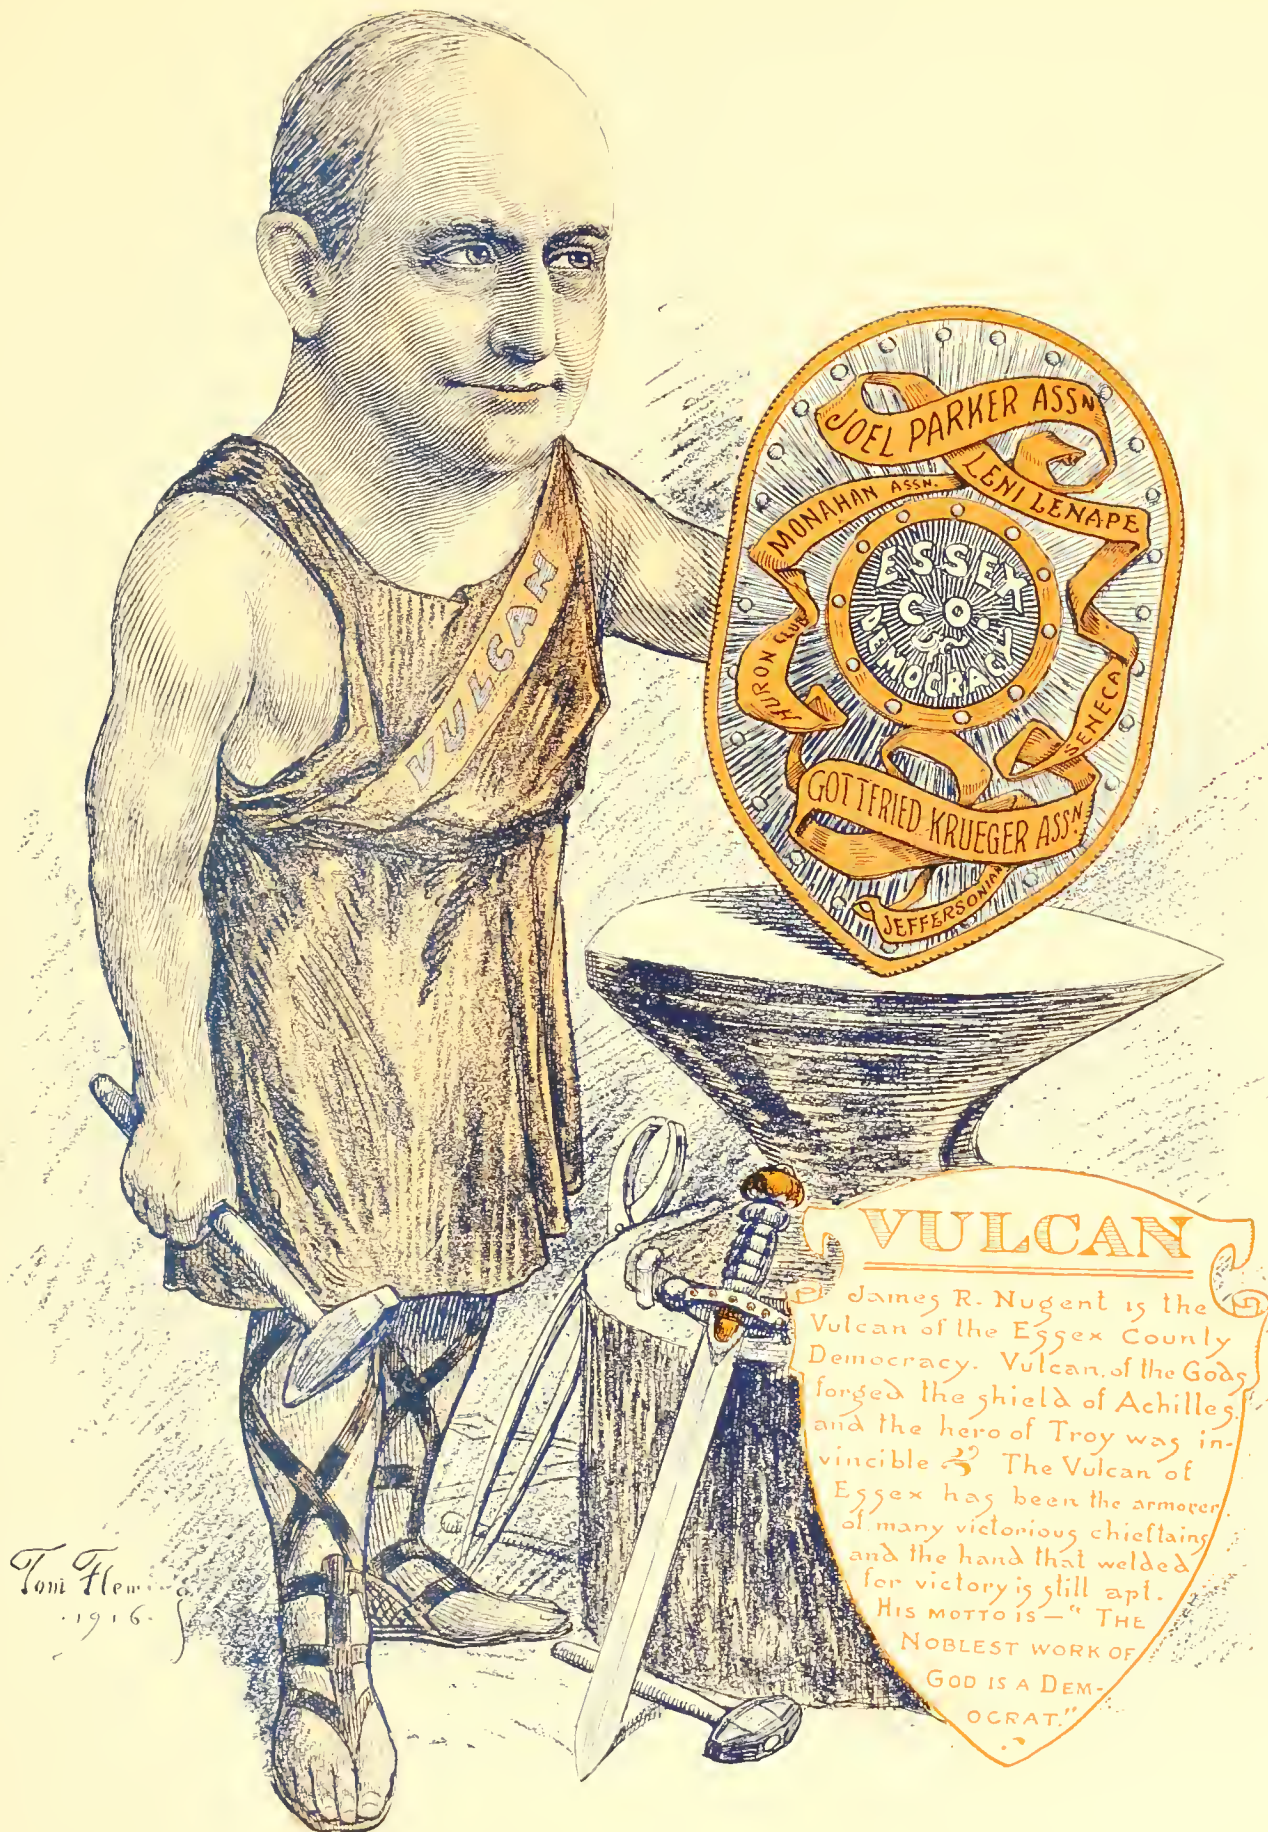 VULCAN
JOEL PARKER ASSN
LENI LENAPE
MONAHAN ASSN.
HURON CLUB
SENECA
ESSEX
CO.
DEMOCRACY
GOTTFRIED KRUEGER ASSN.
JEFFERSONIAN
VULCAN
James R. Nugent is the
Vulcan of the Essex County
Democracy. Vulcan, of the Gods,
forged the shield of Achilles,
and the hero of Troy was in-
vincible The Vulcan of
Essex has been the armorer
of many victorious chieftains
and the hand that welded
for victory is still apt.
HIS MOTTO IS — "THE
NOBLEST WORK OF
GOD IS A DEM-
OCRAT."
Tom Fleming
·1916·